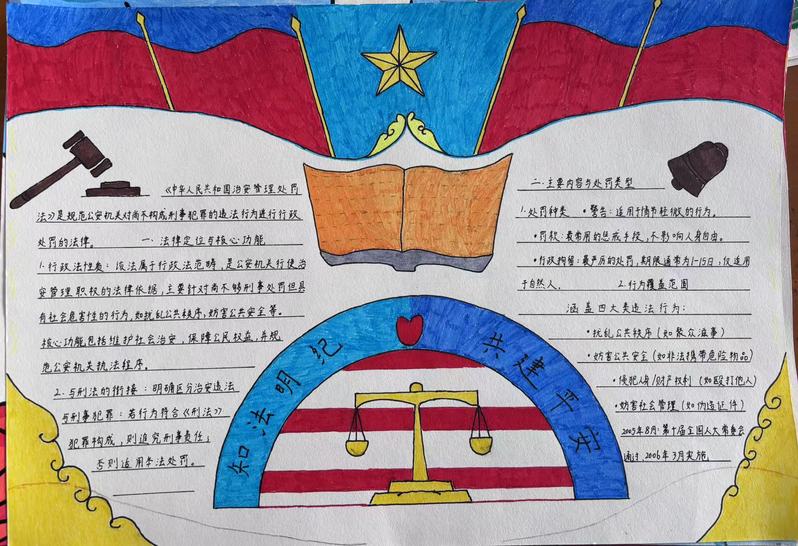 《中华人民共和国治安管理处罚
法》是规范公安机关对尚不构成刑事犯罪的违法行为进行行政
处罚的法律。 一、法律定位与核心功能
1.行政法性质：该法属于行政法范畴，是公安机关行使治
安管理职权的法律依据，主要针对尚不够刑事处罚但具
有社会危害性的行为，如扰乱公共秩序，妨害公共安全等。
核心功能包括维护社会治安，保障公民权益，并规
范公安机关执法程序。
2.与刑法的衔接：明确区分治安违法
与刑事犯罪：若行为符合《刑法》
犯罪构成，则追究刑事责任；
否则适用本法处罚。
知法明纪 共建平安
二、主要内容与处罚类型
1.处罚种类 •警告：适用于情节轻微的行为。
•罚款：最常用的惩戒手段，不影响人身自由。
•行政拘留：最严厉的处罚，期限通常为1-15日，仅适用
于自然人。 2.行为覆盖范围
涵盖四大类违法行为：
•扰乱公共秩序（如聚众滋事）
•妨害公共安全（如非法携带危险物品）
•侵犯人身/财产权利（如殴打他人）
•妨害社会管理（如伪造证件）
2005年8月·第十届全国人大常委会
通过，2006年3月实施